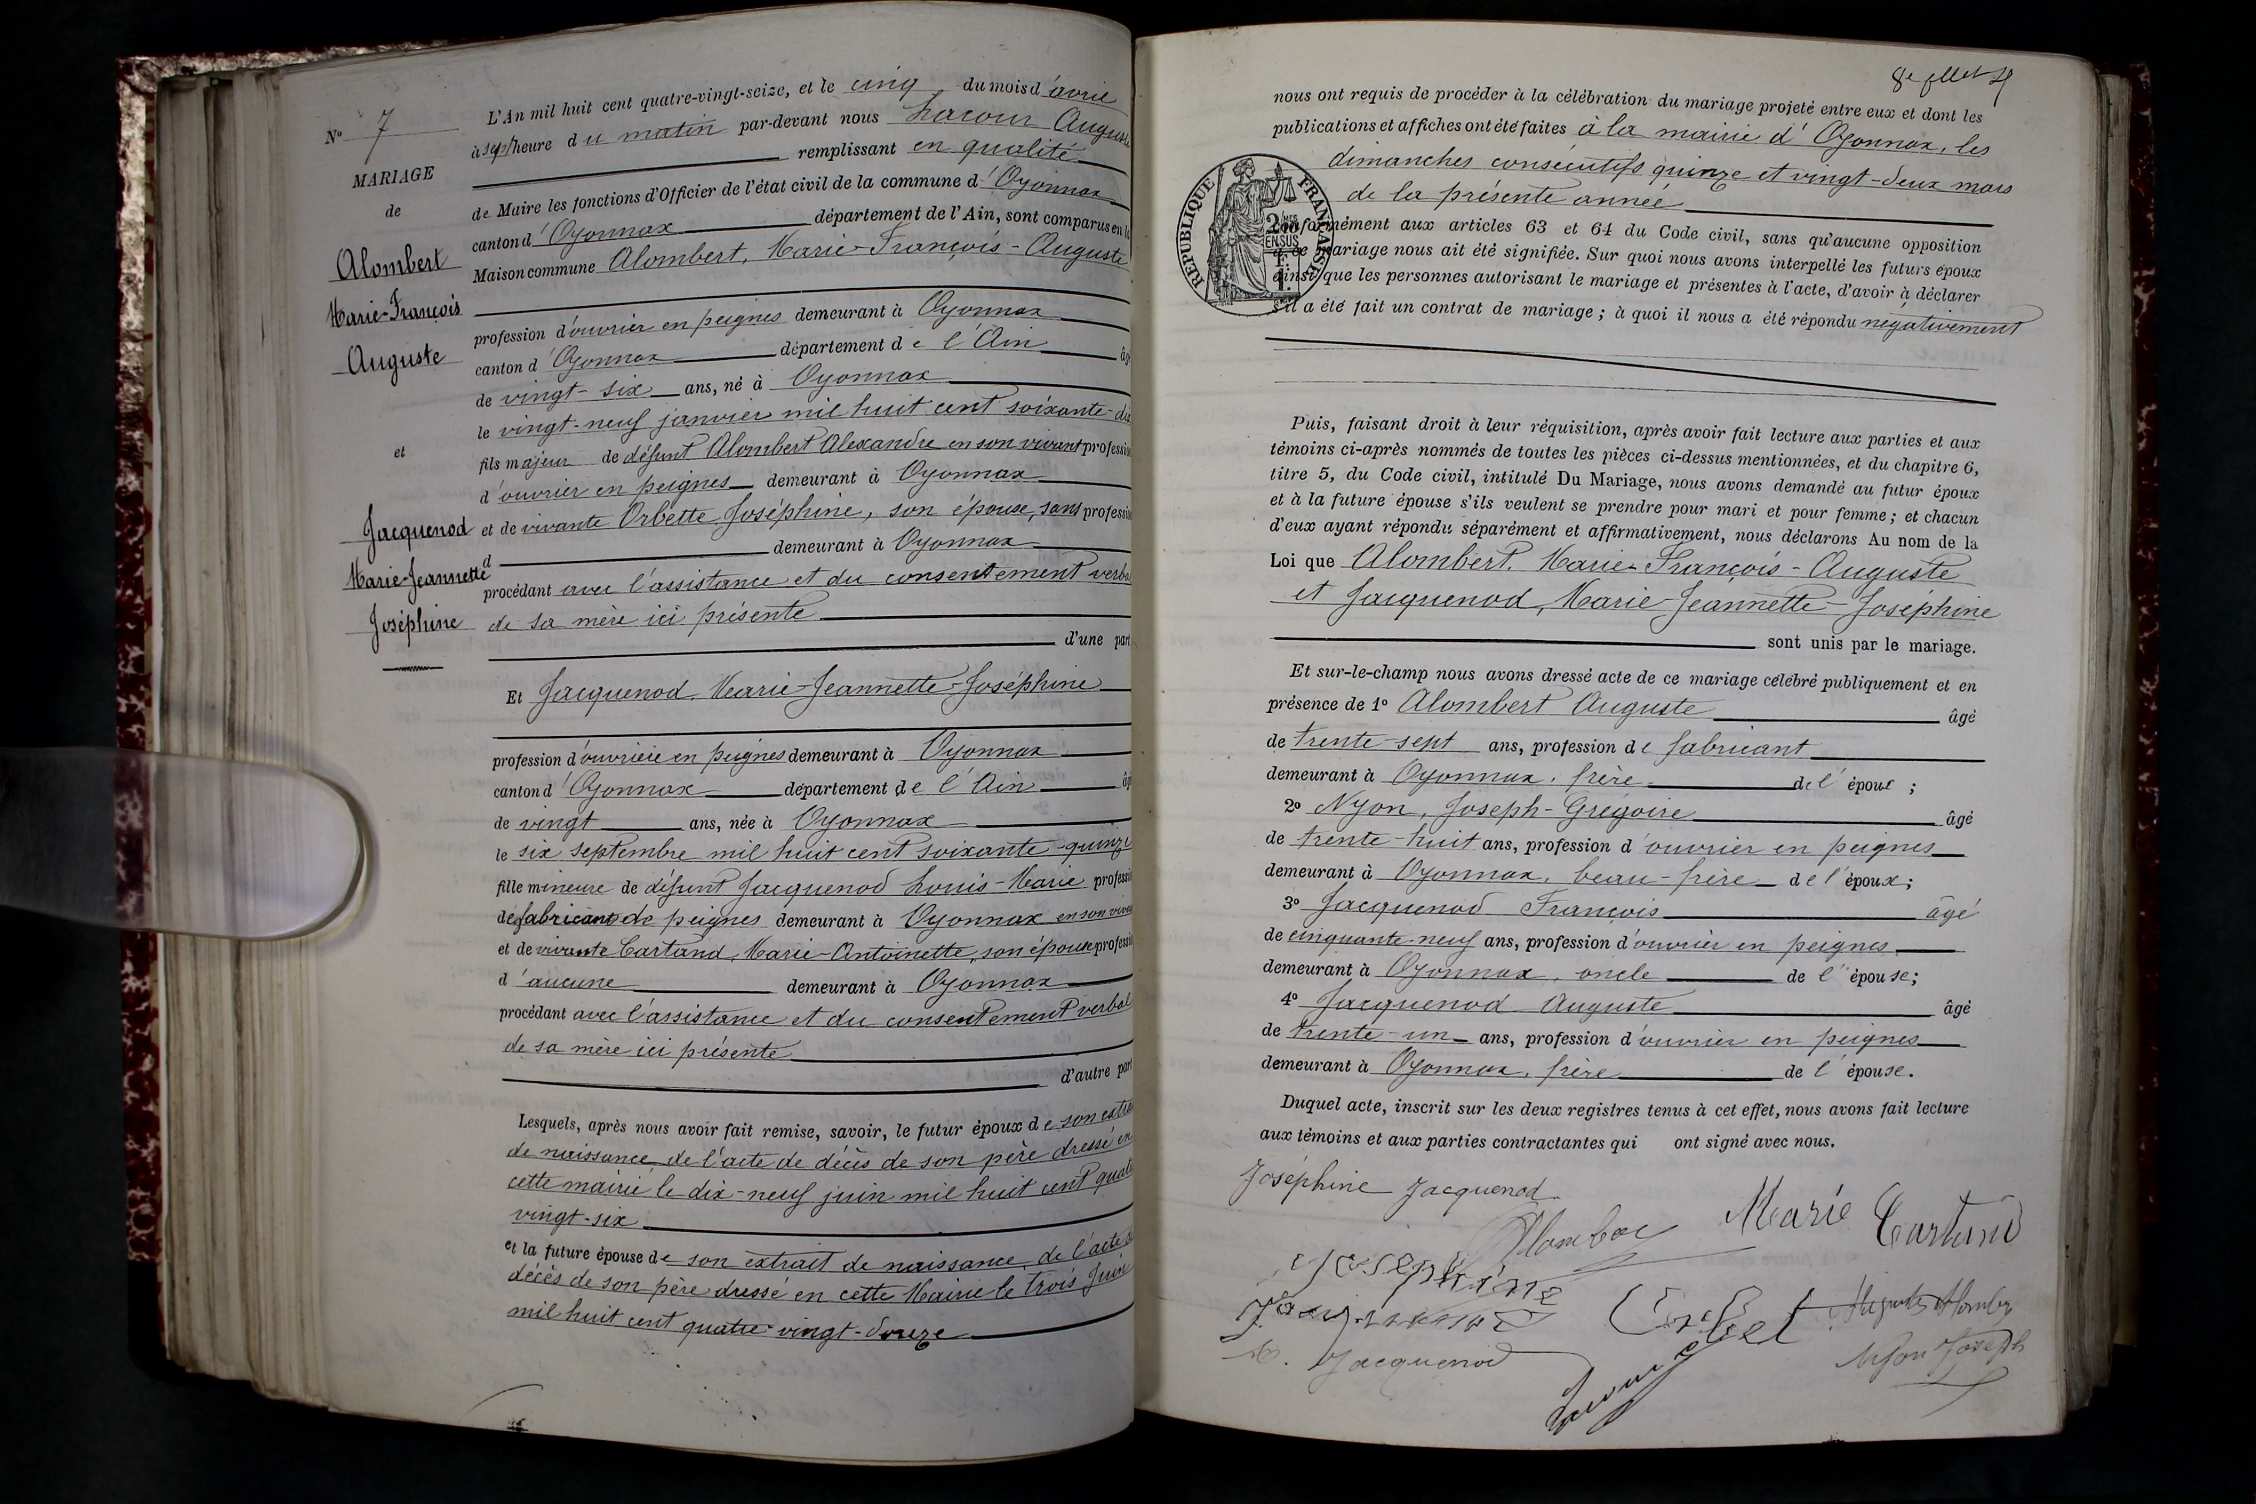 N° 7
MARIAGE
de
Alombert
Marie-François
Auguste
et
Jacquenod
Marie-Jeannette
Joséphine
L'An mil huit cent quatre-vingt-seize, et le cinq du mois d'avril
à sept heure du matin par-devant nous Lacour Auguste
remplissant en qualité
de Maire les fonctions d'Officier de l'état civil de la commune d'Oyonnax
canton d'Oyonnax département de l'Ain, sont comparus en la
Maison commune Alombert, Marie-François-Auguste
profession d'ouvrier en peignes demeurant à Oyonnax
canton d'Oyonnax département de l'Ain âg
de vingt-six ans, né à Oyonnax
le vingt-neuf janvier mil huit cent soixante-dix
fils majeur de défunt Alombert Alexandre en son vivant profession
d'ouvrier en peignes demeurant à Oyonnax
et de vivante Orbette Joséphine, son épouse, sans profession
d demeurant à Oyonnax
procédant avec l'assistance et du consentement verbal
de sa mère ici présente
d'une part
Et Jacquenod, Marie-Jeannette-Joséphine
profession d'ouvrière en peignes demeurant à Oyonnax
canton d'Oyonnax département de l'Ain âg
de vingt ans, née à Oyonnax
le six septembre mil huit cent soixante-quinze
fille mineure de défunt Jacquenod Louis-Marie profession
de fabricant de peignes demeurant à Oyonnax en son vivant
et de vivante Cartand, Marie-Antoinette, son épouse profession
d'aucune demeurant à Oyonnax
procédant avec l'assistance et du consentement verbal
de sa mère ici présente
d'autre part
Lesquels, après nous avoir fait remise, savoir, le futur époux de son extrait
de naissance, de l'acte de décès de son père dressé en
cette mairie le dix-neuf juin mil huit cent quatre
vingt-six
et la future épouse de son extrait de naissance, de l'acte de
décès de son père dressé en cette Mairie le trois Juin
mil huit cent quatre-vingt-douze
8e fllet
nous ont requis de procéder à la célébration du mariage projeté entre eux et dont les
publications et affiches ont été faites à la mairie d'Oyonnax, les
dimanches consécutifs quinze et vingt-deux mars
de la présente année
RÉPUBLIQUE FRANÇAISE
2 EN SUS
conformément aux articles 63 et 64 du Code civil, sans qu'aucune opposition
à ce mariage nous ait été signifiée. Sur quoi nous avons interpellé les futurs époux
ainsi que les personnes autorisant le mariage et présentes à l'acte, d'avoir à déclarer
s'il a été fait un contrat de mariage ; à quoi il nous a été répondu négativement
Puis, faisant droit à leur réquisition, après avoir fait lecture aux parties et aux
témoins ci-après nommés de toutes les pièces ci-dessus mentionnées, et du chapitre 6,
titre 5, du Code civil, intitulé Du Mariage, nous avons demandé au futur époux
et à la future épouse s'ils veulent se prendre pour mari et pour femme ; et chacun
d'eux ayant répondu séparément et affirmativement, nous déclarons Au nom de la
Loi que Alombert, Marie-François-Auguste
et Jacquenod, Marie-Jeannette-Joséphine
sont unis par le mariage.
Et sur-le-champ nous avons dressé acte de ce mariage célébré publiquement et en
présence de 1° Alombert Auguste âgé
de trente-sept ans, profession de fabricant
demeurant à Oyonnax, frère de l'époux ;
2° Nyon, Joseph-Gregoire âgé
de trente-huit ans, profession d'ouvrier en peignes
demeurant à Oyonnax, beau-frère de l'époux ;
3° Jacquenod François âgé
de cinquante-neuf ans, profession d'ouvrier en peignes
demeurant à Oyonnax, oncle de l'épouse ;
4° Jacquenod Auguste âgé
de trente-un ans, profession d'ouvrier en peignes
demeurant à Oyonnax, frère de l'épouse.
Duquel acte, inscrit sur les deux registres tenus à cet effet, nous avons fait lecture
aux témoins et aux parties contractantes qui ont signé avec nous.
Joséphine Jacquenod
Alombert Marie Cartand
Josephine Orbet
Auguste Alombert
Jacquenod
Nyon Joseph